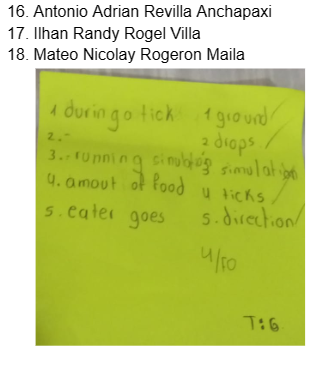 16. Antonio Adrian Revilla Anchapaxi
17. Ilhan Randy Rogel Villa
18. Mateo Nicolay Rogeron Maila
1 durin go tick
2.-
3.- running
4. amout of food
5. eater goes
1 ground
2 drops
3 simulation
4 ticks
5. direction
4/50
T:G